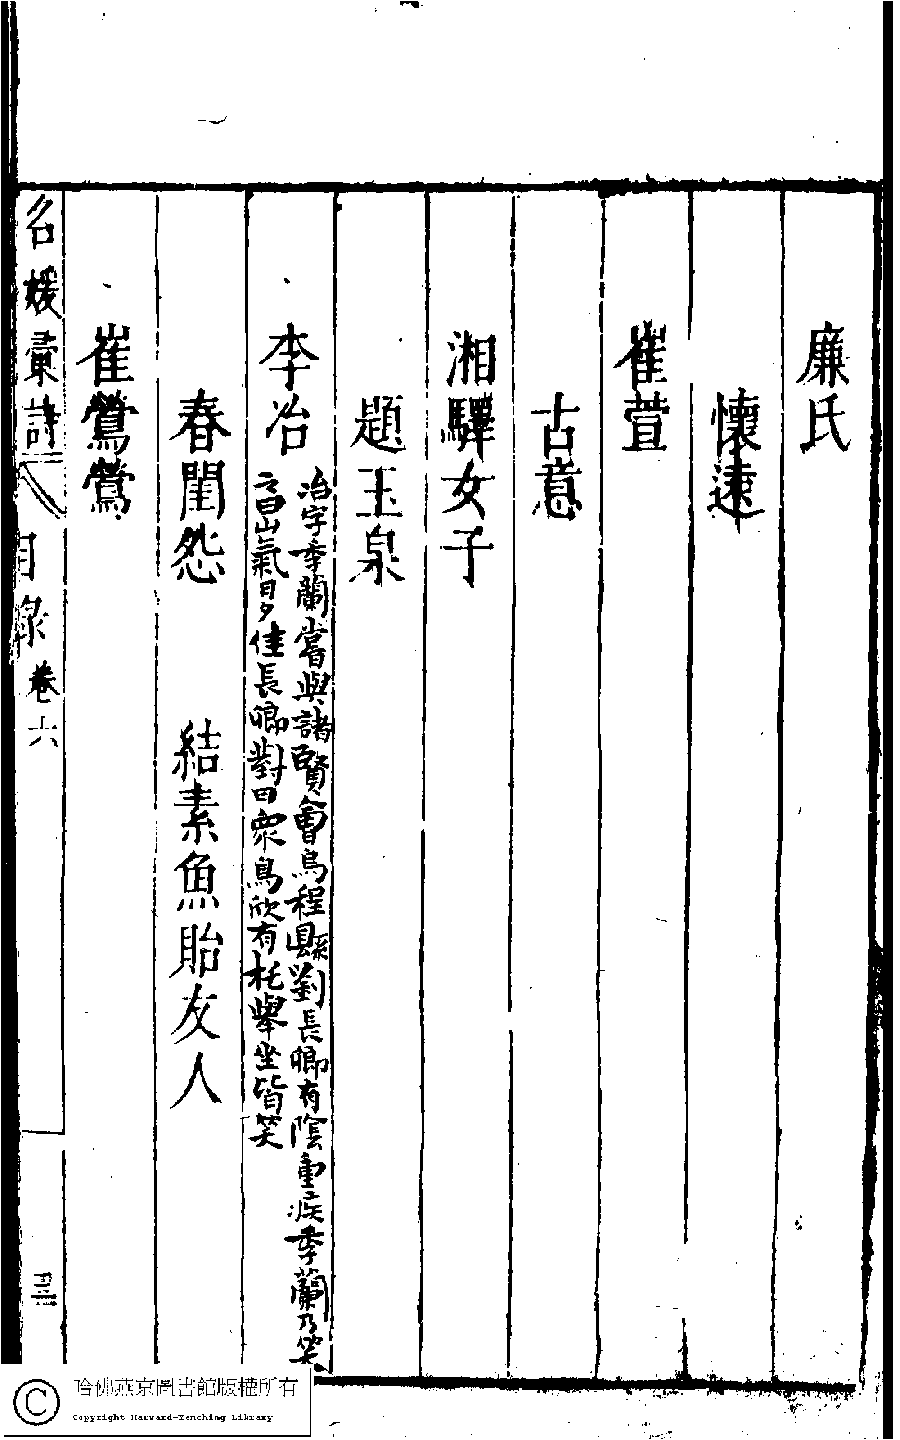 廉氏
懷遠
崔萱
古意
湘驛女子
題玉泉
李冶
冶字季蘭嘗與諸賢會烏程縣劉長卿有陰重疾季蘭乃笑
之曰山氣日夕佳長卿對曰衆鳥欣有托舉坐皆笑
春閨怨 結素魚貽友人
崔鶯鶯
名媛彙詩 目錄 卷六 三
哈佛燕京圖書館版權所有
Copyright Harvard-Yenching Library